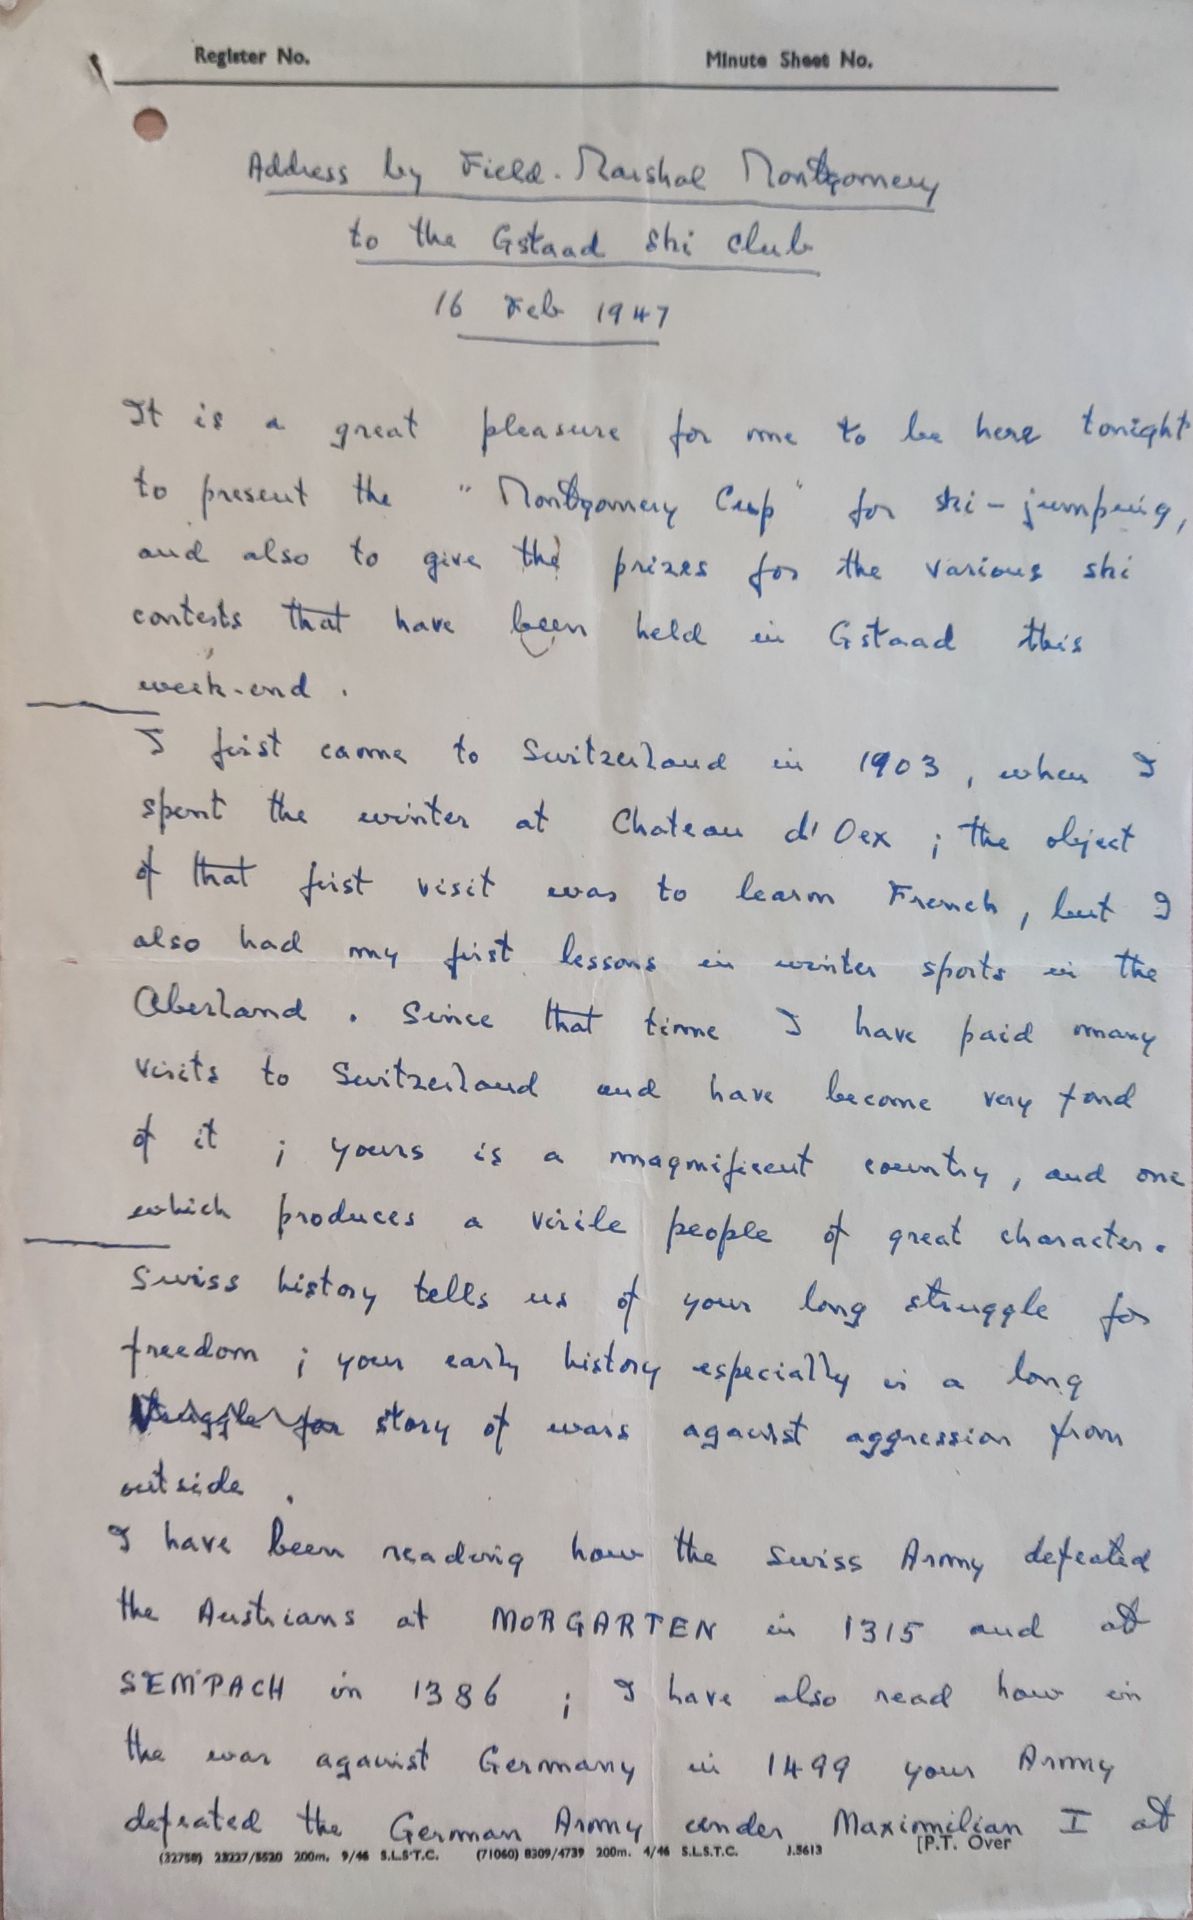 Register No. Minute Sheet No.
Address by Field-Marshal Montgomery
to the Gstaad Ski Club
16 Feb 1947
It is a great pleasure for me to be here tonight
to present the "Montgomery Cup" for ski-jumping,
and also to give the prizes for the various ski
contests that have been held in Gstaad this
week-end.
I first came to Switzerland in 1903, when I
spent the winter at Chateau d'Oex; the object
of that first visit was to learn French, but I
also had my first lessons in winter sports in the
Oberland. Since that time I have paid many
visits to Switzerland and have become very fond
of it; yours is a magnificent country, and one
which produces a virile people of great character.
Swiss history tells us of your long struggle for
freedom; your early history especially is a long
struggle for story of wars against aggression from
outside.
I have been reading how the Swiss Army defeated
the Austrians at MORGARTEN in 1315 and at
SEMPACH in 1386; I have also read how in
the war against Germany in 1499 your Army
defeated the German Army under Maximilian I at
(32758) 28227/5520 200m. 9/46 S.L.S.T.C. (71060) 8309/4739 200m. 4/46 S.L.S.T.C. J.5613 [P.T. Over